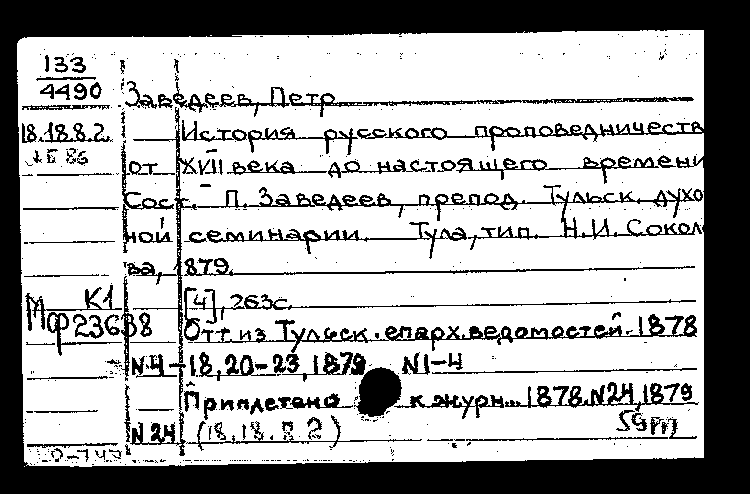 133
4490
Заведеев, Петр
18.18.8.2.
История русского проповедничеств
от XVII века до настоящего времени
Сост. П. Заведеев, препод. Тульск. духо
ной семинарии. Тула, тип. Н.И. Сокол
ва, 1879.
К1
[4], 263с.
Мф23638
Отт. из Тульск. епарх. ведомостей. 1878
N4-18, 20-23, 1879 N1-4
Приплетано к журн... 1878. N24, 1879
N24 (18.18. 2)